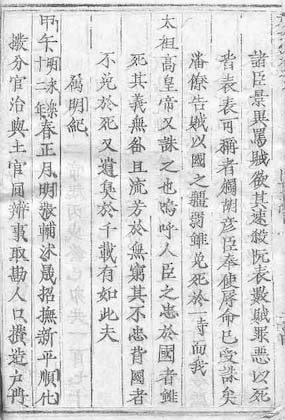 諸臣景異罵賊欲其速殺阮表數賊罪惡以死
皆表表可稱者獨胡彦臣奉使辱命已受誅矣
潘僚告賊以國之疆弱雖免死於一時而我
太祖高皇帝又誅之也嗚呼人臣之忠於國者雖
死其義無咎且流芳於無窮其不忠背國者
不免於死又遺臭於千載有如此夫
屬明紀
甲午明永樂十二年春正月明張輔沐晟招撫新平順化
撥分官治與土官同辨事取勘人口攅造户冊